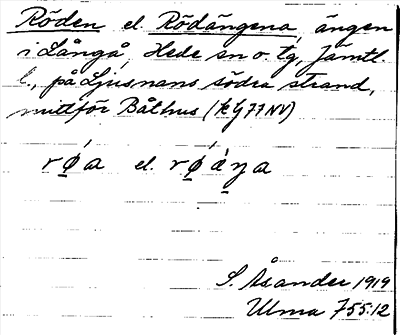 Röden el. Rödängena, ängen
i Långå, Hede sn o. tg, Jämtl.
l., på Ljusnans södra strand,
mittför Båthus (k G 77 NV)
rǿa el. røǻŋa
S. Åsander 1919
Ulma 755:12